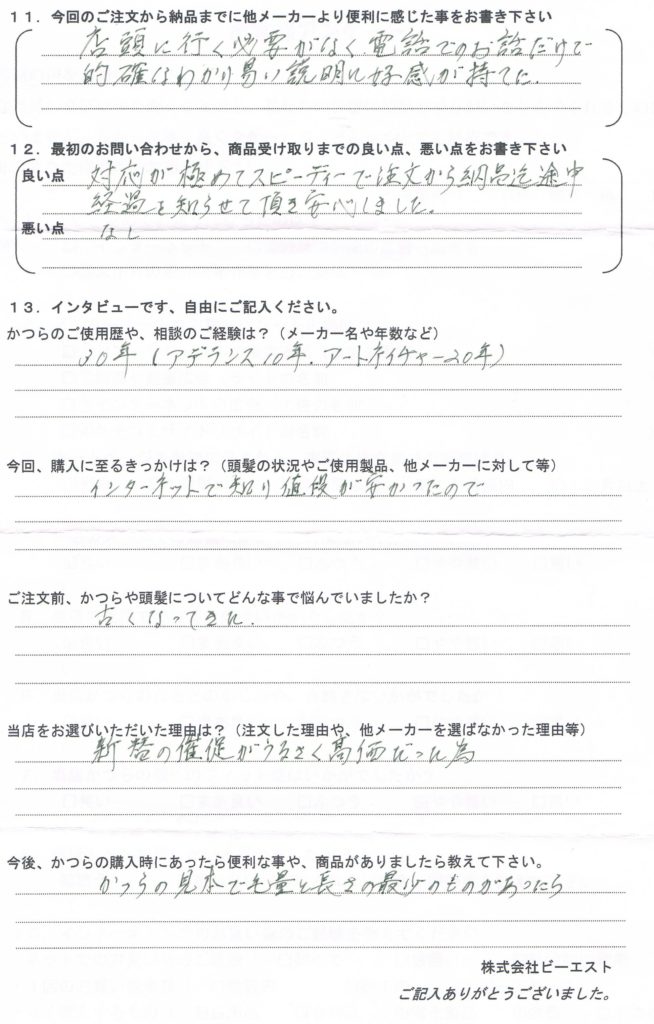 １１．今回のご注文から納品までに他メーカーより便利に感じた事をお書き下さい
店頭に行く必要がなく電話でのお話だけで
的確なわかり易い説明に好感が持てた.
１２．最初のお問い合わせから、商品受け取りまでの良い点、悪い点をお書き下さい
良い点 対応が極めてスピーディーで注文から納品迄途中
経過を知らせて頂き安心しました。
悪い点 なし
１３．インタビューです、自由にご記入ください。
かつらのご使用歴や、相談のご経験は？（メーカー名や年数など）
30年（アデランス10年.アートネイチャー20年）
今回、購入に至るきっかけは？（頭髪の状況やご使用製品、他メーカーに対して等）
インターネットで知り値段が安かったので
ご注文前、かつらや頭髪についてどんな事で悩んでいましたか？
古くなってきた.
当店をお選びいただいた理由は？（注文した理由や、他メーカーを選ばなかった理由等）
新替の催促がうるさく高価だった為
今後、かつらの購入時にあったら便利な事や、商品がありましたら教えて下さい。
かつらの見本で毛量と長さの最少のものがあったら
株式会社ビーエスト
ご記入ありがとうございました。